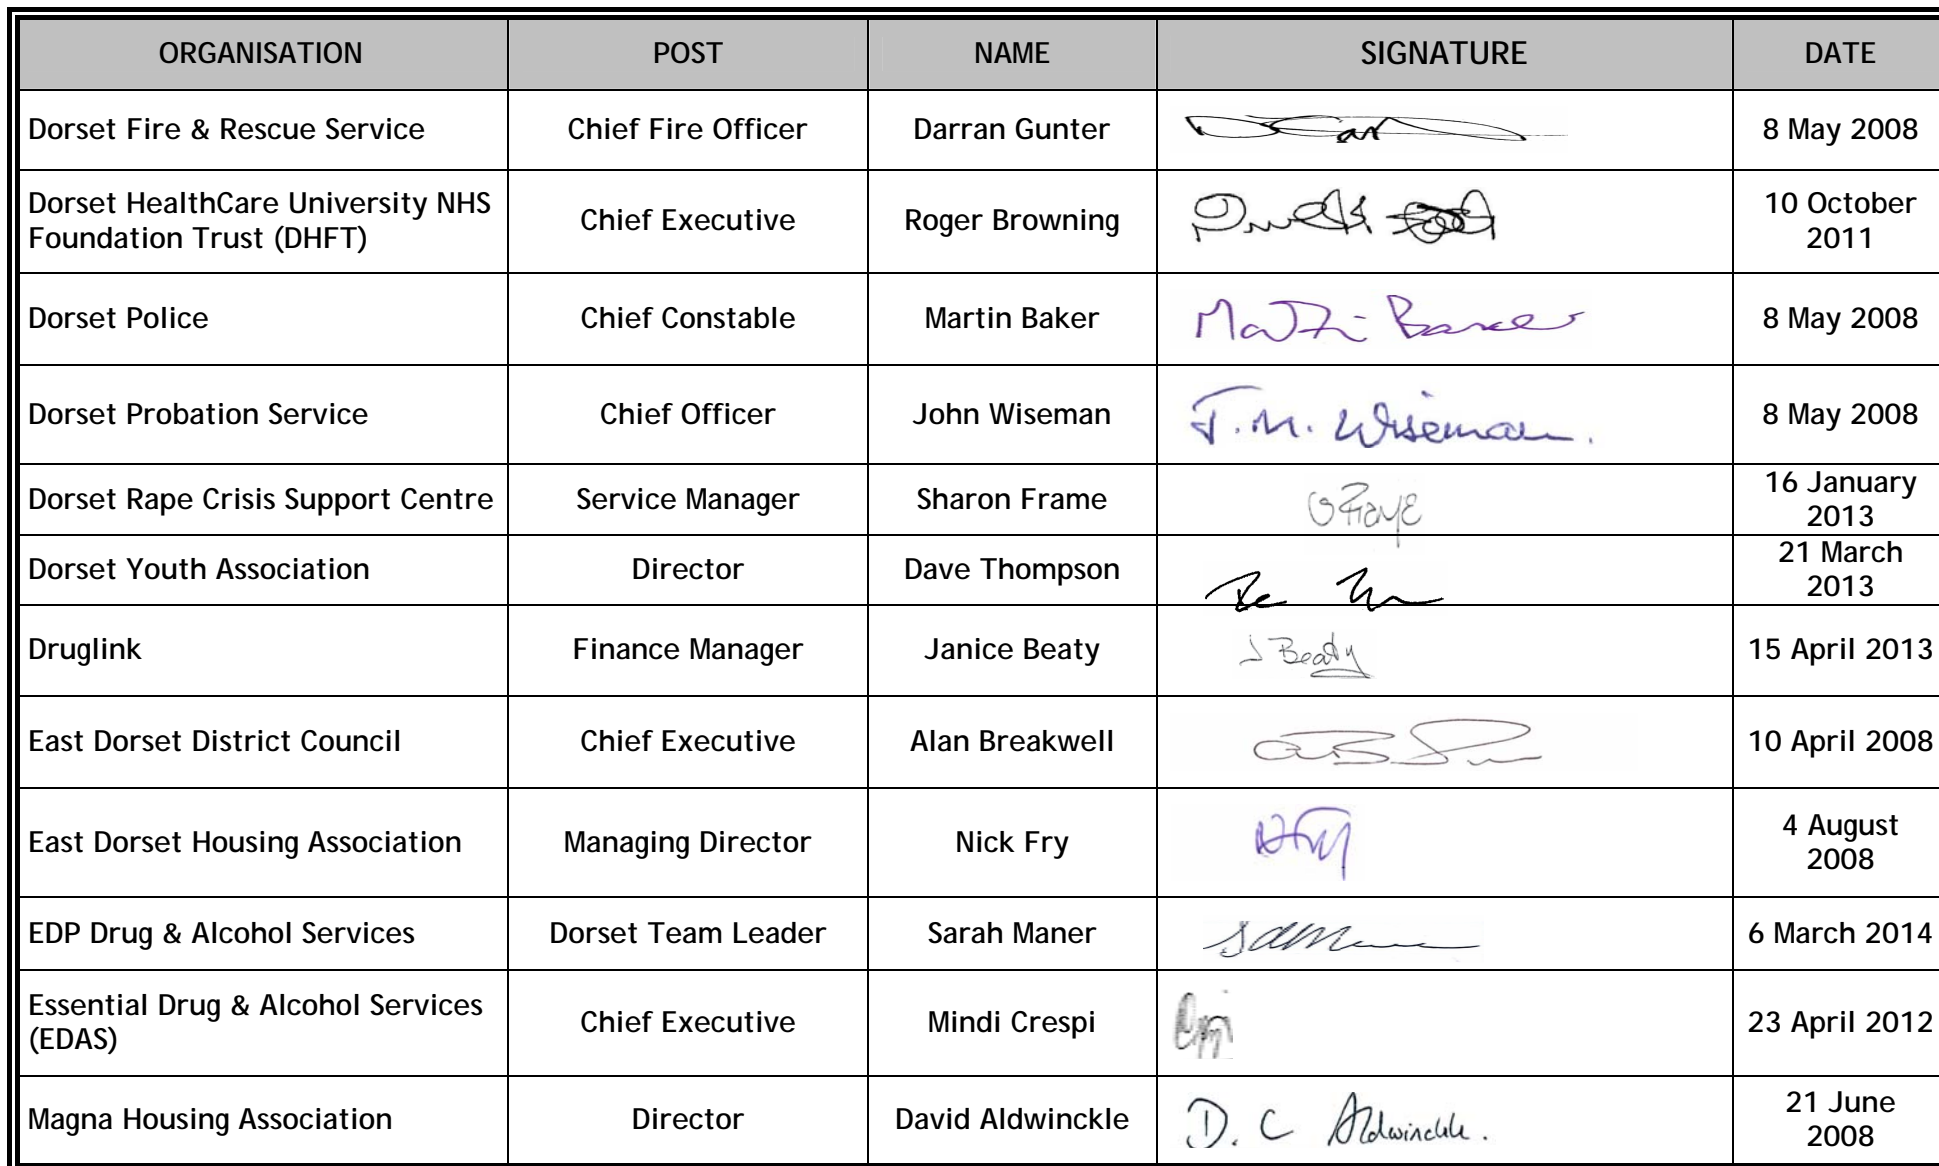 ORGANISATION POST NAME SIGNATURE DATE
Dorset Fire & Rescue Service Chief Fire Officer Darran Gunter 8 May 2008
Dorset HealthCare University NHS
Foundation Trust (DHFT) Chief Executive Roger Browning 10 October
2011
Dorset Police Chief Constable Martin Baker Martin Baker 8 May 2008
Dorset Probation Service Chief Officer John Wiseman J. M. Wiseman. 8 May 2008
Dorset Rape Crisis Support Centre Service Manager Sharon Frame 16 January
2013
Dorset Youth Association Director Dave Thompson 21 March
2013
Druglink Finance Manager Janice Beaty J Beaty 15 April 2013
East Dorset District Council Chief Executive Alan Breakwell 10 April 2008
East Dorset Housing Association Managing Director Nick Fry 4 August
2008
EDP Drug & Alcohol Services Dorset Team Leader Sarah Maner 6 March 2014
Essential Drug & Alcohol Services
(EDAS) Chief Executive Mindi Crespi 23 April 2012
Magna Housing Association Director David Aldwinckle D. C Aldwinckle. 21 June
2008